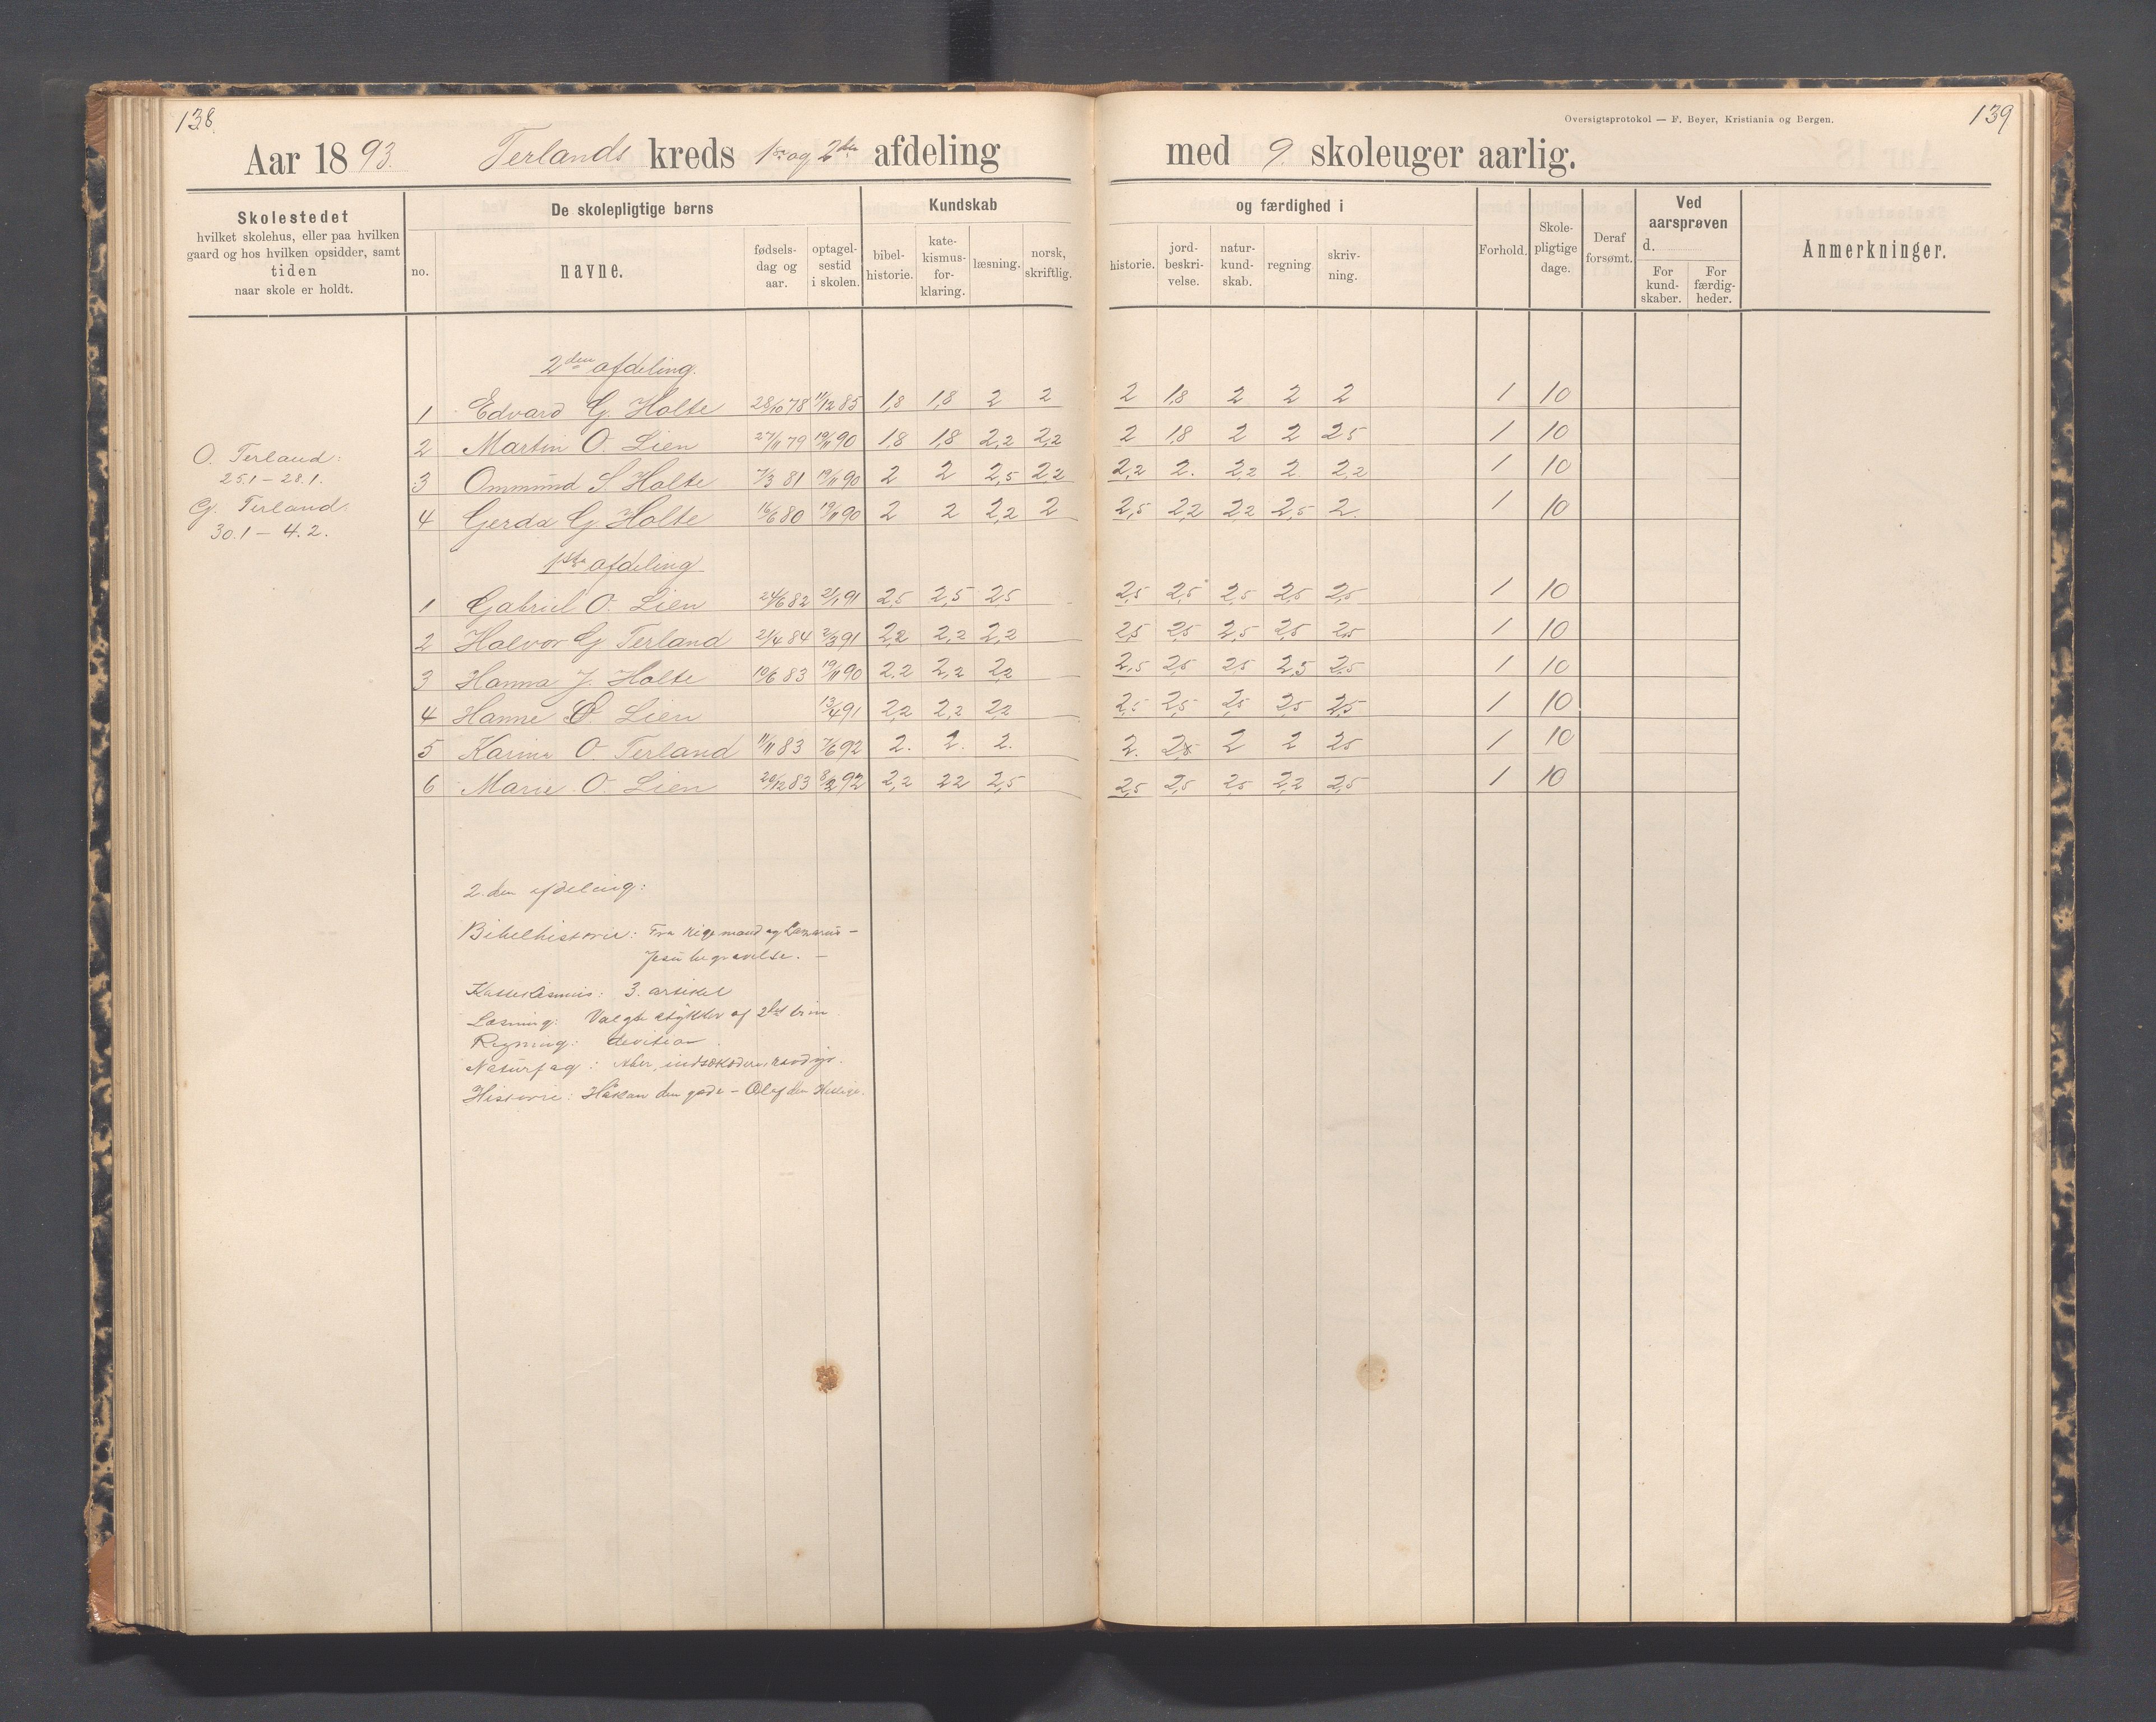 138
139
Oversigtsprotokol — F. Beyer, Kristiania og Bergen.
Aar 1893. Terlands kreds 1ste og 2den afdeling med 9 skoleuger aarlig.
Skolestedet
hvilket skolehus, eller paa hvilken
gaard og hos hvilken opsidder, samt
tiden
naar skole er holdt.
De skolepligtige børns
no.
navne.
fødsels-
dag og
aar.
optagel-
sestid
i skolen.
Kundskab
bibel-
historie.
kate-
kismus-
for-
klaring.
læsning.
norsk,
skriftlig.
og færdighed i
historie.
jord-
beskri-
velse.
natur-
kund-
skab.
regning
skriv-
ning.
Forhold.
Skole-
pligtige
dage.
Deraf
forsømt.
Ved
aarsprøven
d.
For
kund-
skaber.
For
færdig-
heder.
Anmerkninger.
2den afdeling.
1 Edvard G. Holte 28/10 78 11/12 85 1,8 1,8 2 2 2 1,8 2 2 2 1 10
2 Martin O. Lien 27/11 79 19/11 90 1,8 1,8 2,2 2,2 2 1,8 2 2 2,5 1 10
O. Terland:
25.1 – 28.1.
G. Terland.
30.1 – 4.2.
3 Ommund S Holte 7/3 81 19/11 90 2 2 2,5 2,2 2,2 2. 2,2 2. 2,2 1 10
4 Gerda G Holte 16/6 80 19/11 90 2 2 2,2 2 2,5 2,2 2,2 2,5 2. 1 10
1ste afdeling
1 Gabriel O. Lien 24/6 82 2/1 91 2,5 2,5 2,5 2,5 2,5 2,5 2,5 2,5 1 10
2 Halvor G Terland 21/4 84 2/3 91 2,2 2,2 2,2 2,5 2,5 2,5 2,5 2,5 1 10
3 Hanna J. Holte 10/6 83 19/11 90 2.2 2,2 2,2 2,5 2,5 2,5 2,5 2,5 1 10
4 Hanne O. Lien 13/4 91 2,2 2,2 2,2 2,5 2,5 2,5 2,5 2,5 1 10
5 Karine O. Terland 11/11 83 7/6 92 2. 2. 2. 2. 2,5 2 2 2,5 1 10
6 Marie O. Lien 20/12 83 8/2 92 2,2 2,2 2,5 2,5 2,5 2,5 2,2 2,5 1 10
2.den afdeling:
Bibelhistorie: Fra rige mand og Lazarus –
Jesu begravelse. –
Kattekismus: 3. artikel
Læsning: Valgte stykker af 2det trin.
Regning: devision.
Naturfag: Aber, indsækædere, rovdyr.
Historie: Håkan den gode – Olaf den Hellige.